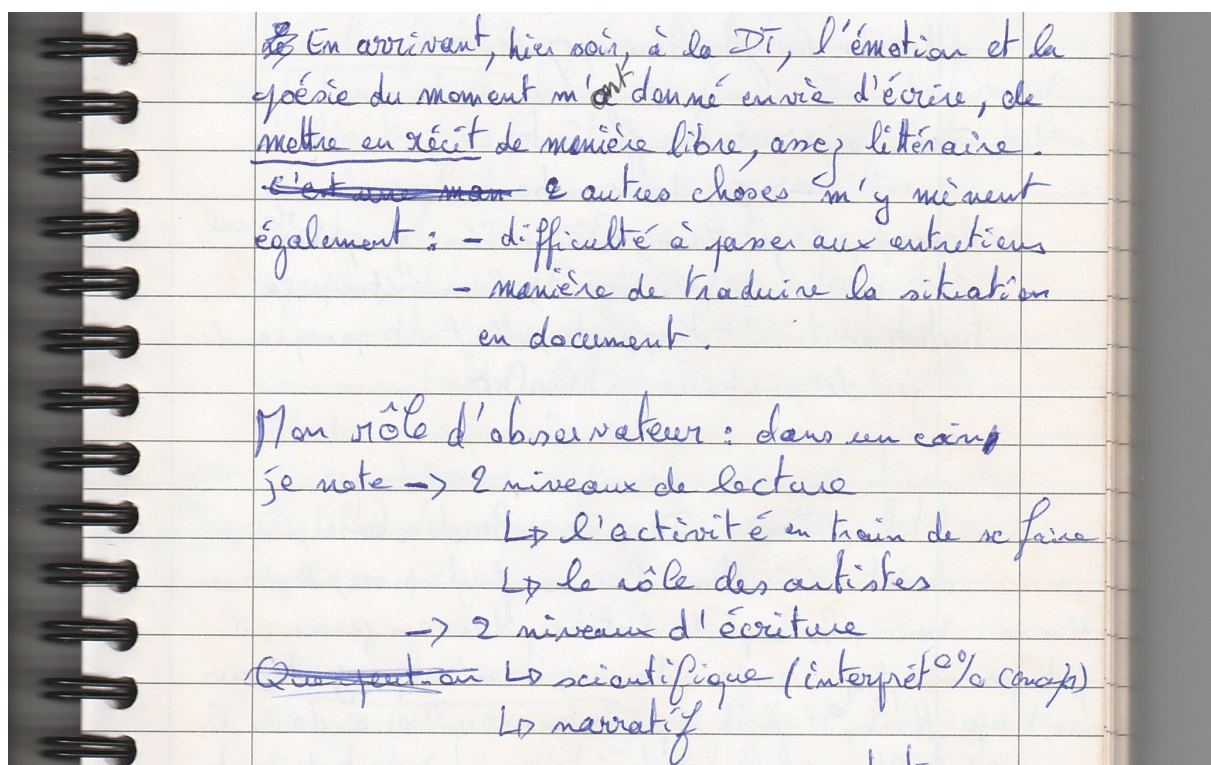 En arrivant, hier soir, à la DT, l'émotion et la
poésie du moment m'ont donné envie d'écrire, de
mettre en récit de manière libre, assez littéraire.
c'est une man 2 autres choses m'y mènent
également : - difficulté à passer aux entretiens
- manière de traduire la situation
en document.
Mon rôle d'observateur : dans un coin
je note -> 2 niveaux de lecture
↳ l'activité en train de se faire
↳ le rôle des artistes
-> 2 niveaux d'écriture
Que peut-on ↳ scientifique (interprét° %
↳ narratif